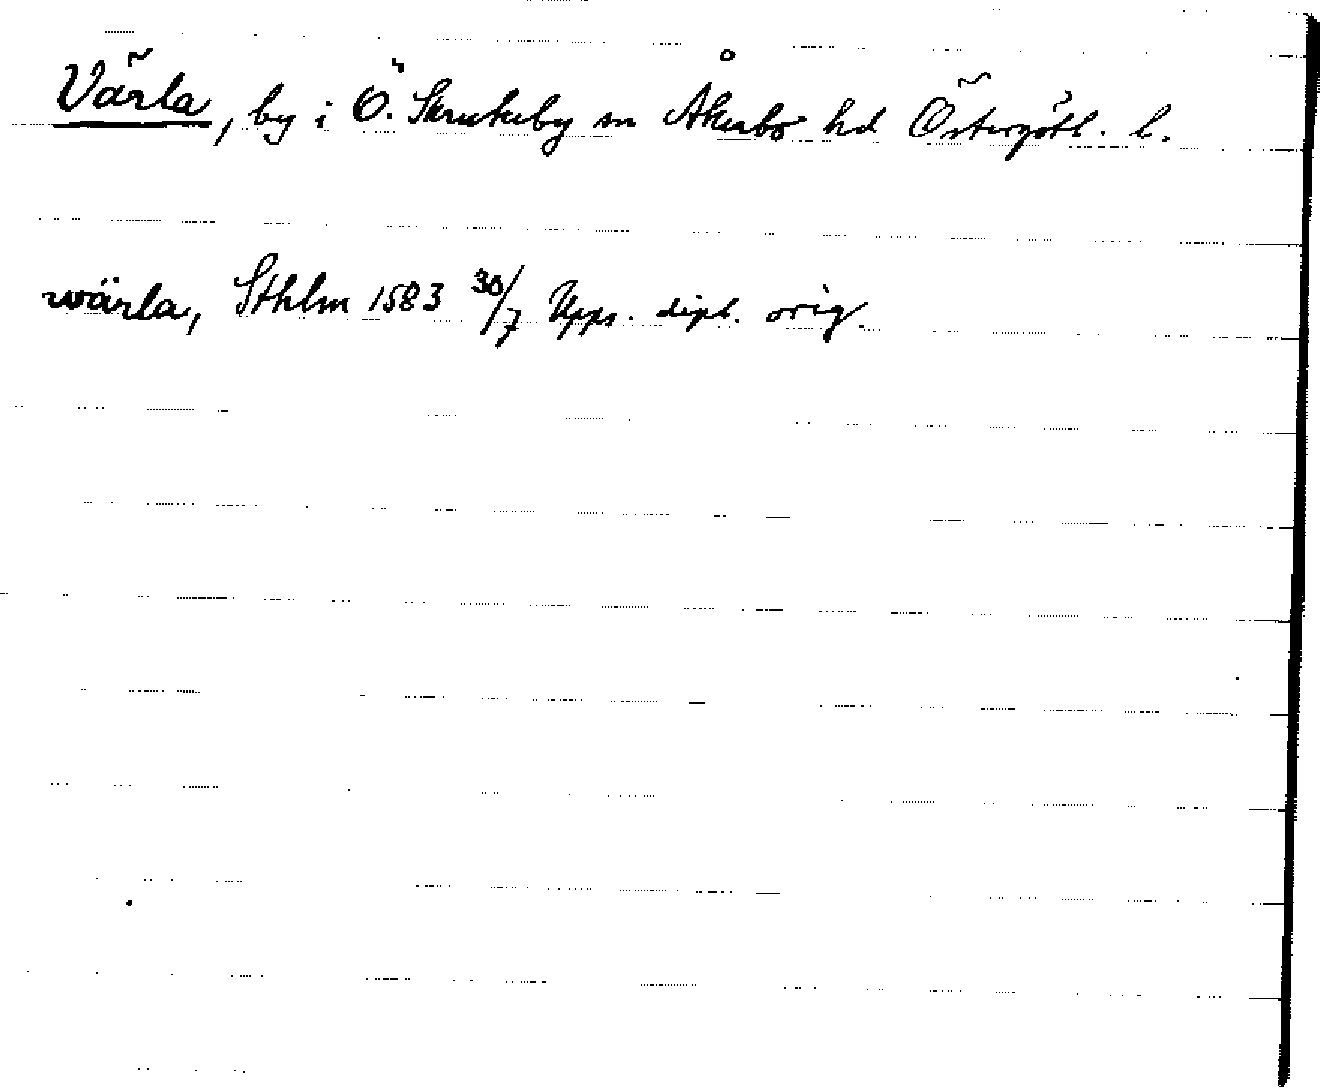 Värla, by i Ö. Skrukeby sn Åkerbo hd Östergötl. l.
wärla, Sthlm 1583 30/7 Upps. dipl. orig.